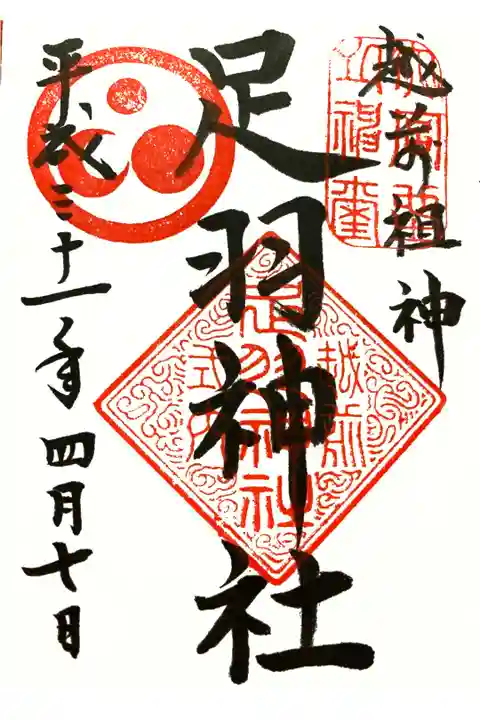 越前祖神
足羽神社
平成三十一年四月十日
越前
足羽神社
式内